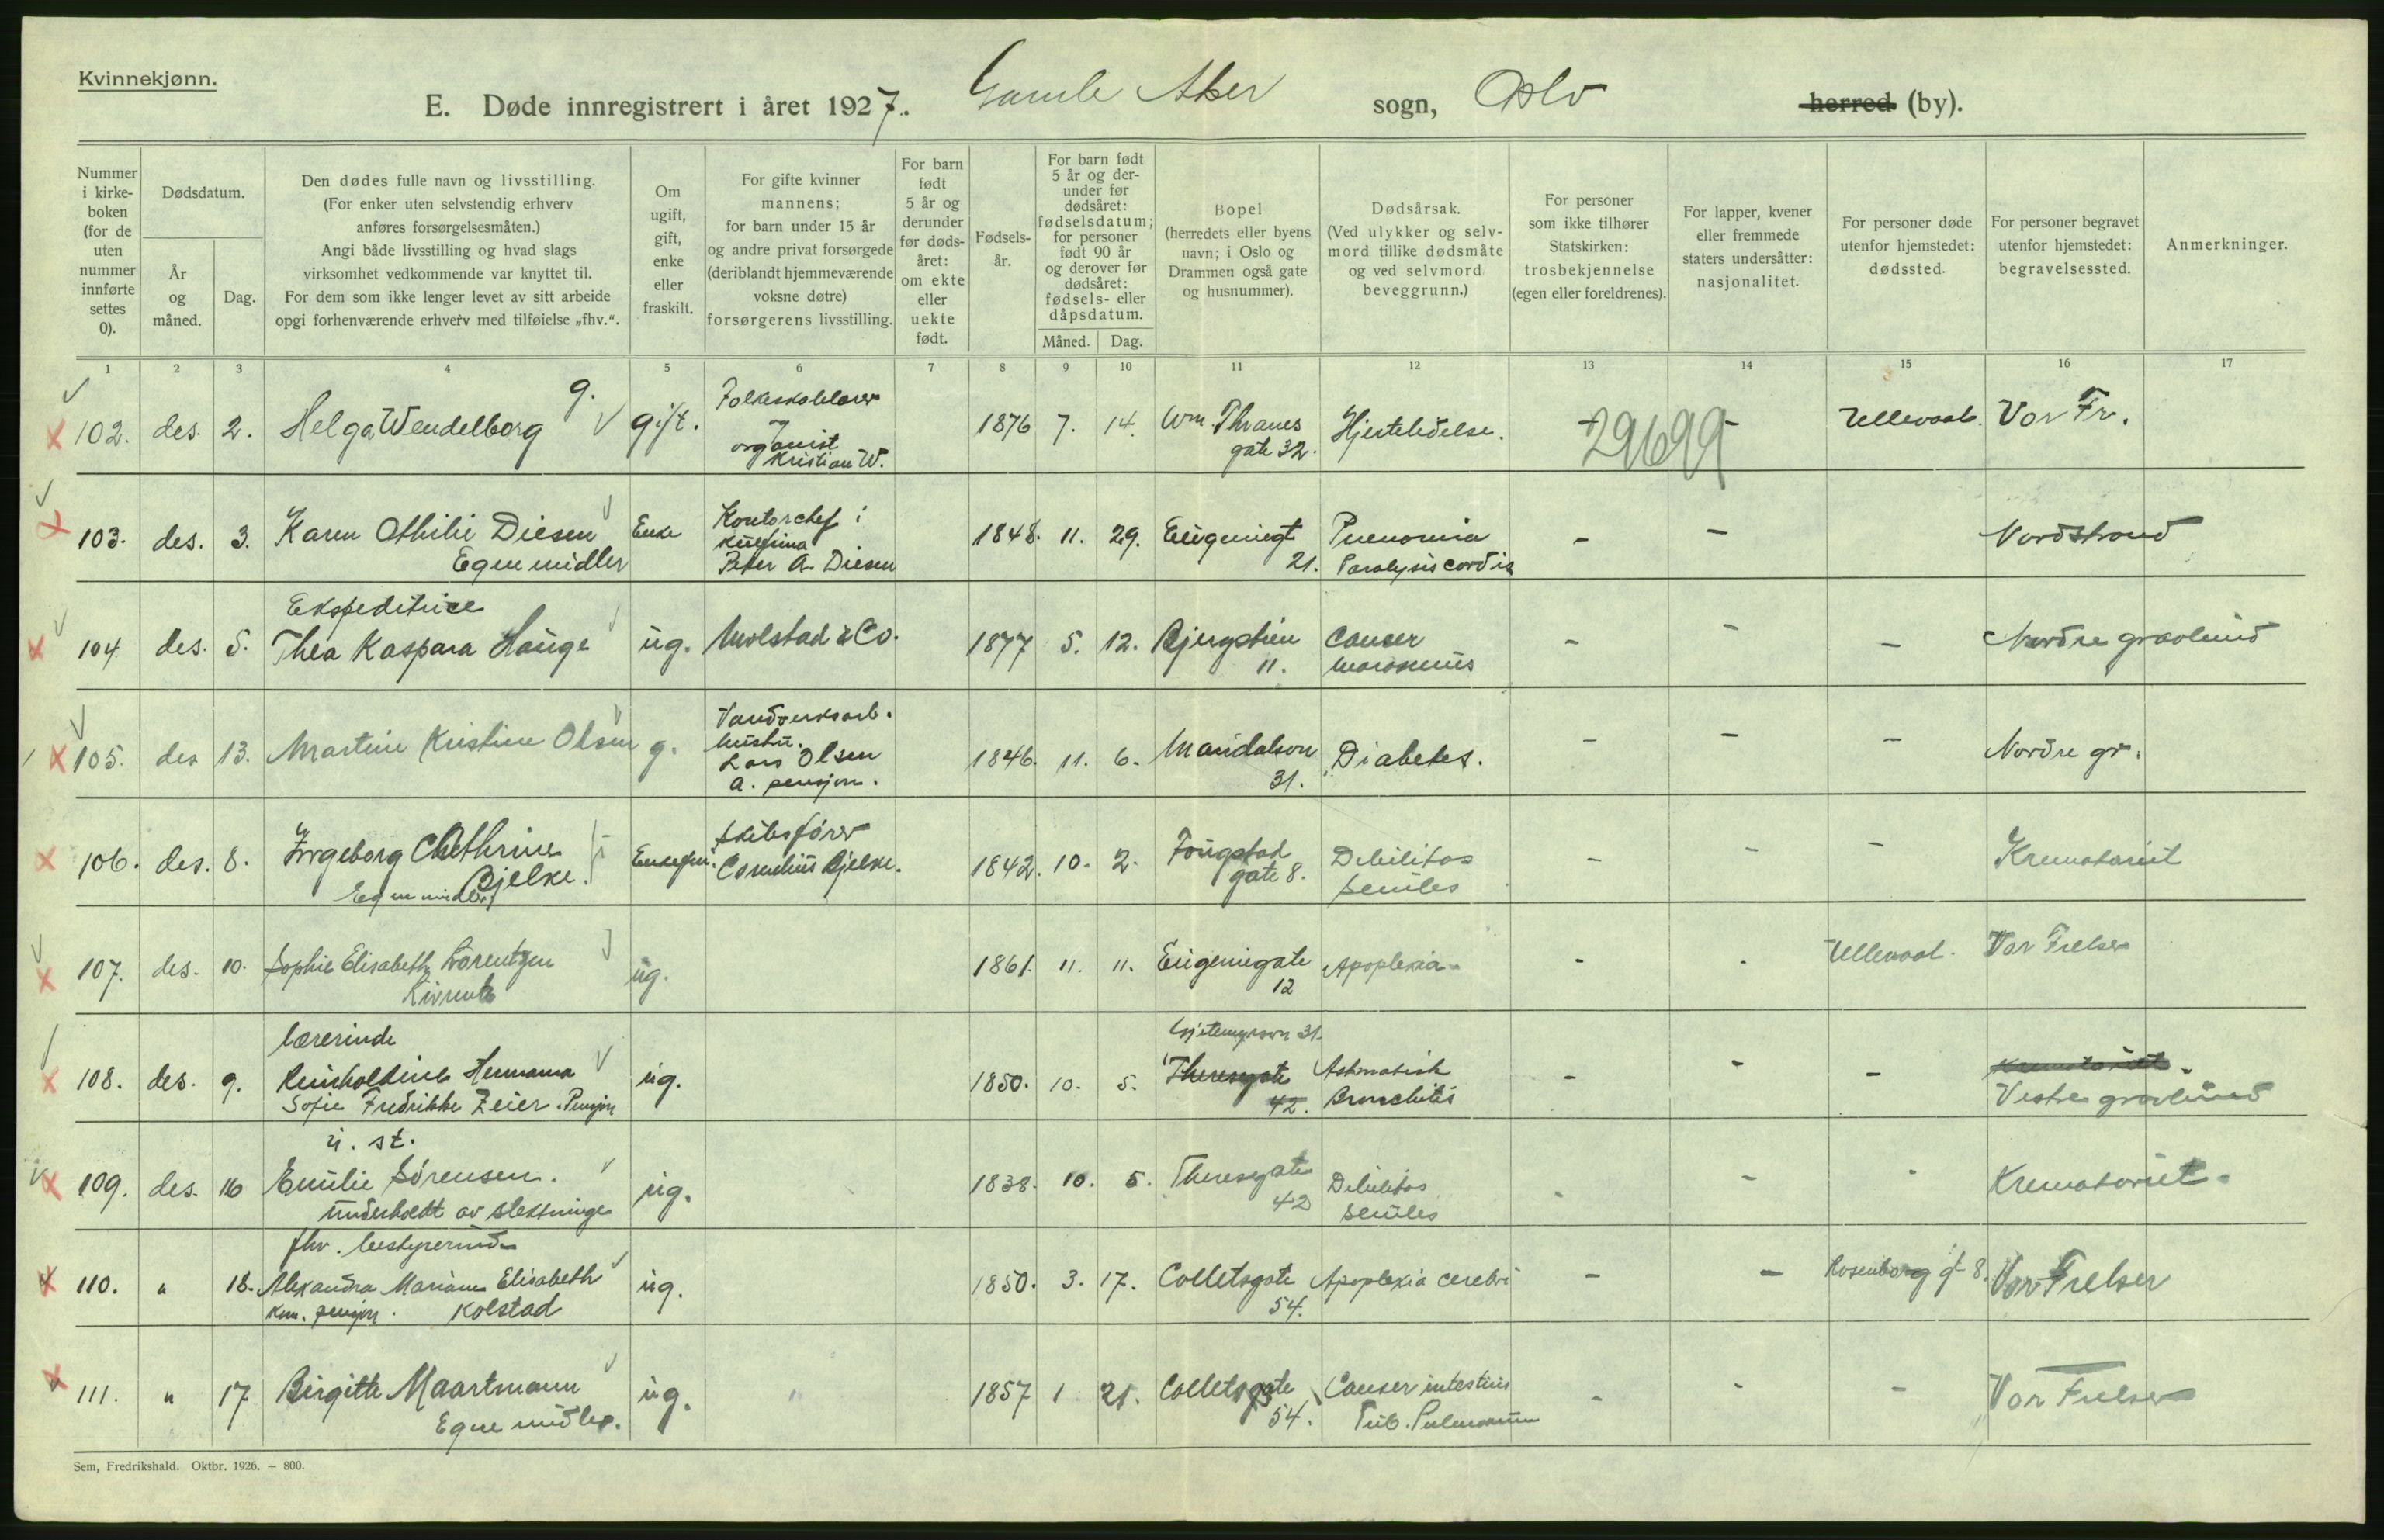 Kvinnekjønn.
E. Døde innregistrert i året 1927. Gamle Aker sogn, Oslo herred (by).
Nummer i kirke-boken (for de uten nummer innførte settes 0).
Dødsdatum.
År og måned.
Dag.
Den dødes fulle navn og livsstilling.
(For enker uten selvstendig erhverv anføres forsørgelsesmåten.)
Angi både livsstilling og hvad slags virksomhet vedkommende var knyttet til.
For dem som ikke lenger levet av sitt arbeide opgi forhenværende erhverv med tilføielse „fhv.“.
Om ugift, gift, enke eller fraskilt.
For gifte kvinner mannens; for barn under 15 år og andre privat forsørgede (deriblandt hjemmeværende voksne døtre) forsørgerens livsstilling.
For barn født 5 år og derunder før døds-året: om ekte eller uekte født.
Fødsels-år.
For barn født 5 år og der-under før dødsåret: fødselsdatum; for personer født 90 år og derover før dødsåret: fødsels- eller dåpsdatum.
Måned. Dag.
Bopel (herredets eller byens navn; i Oslo og Drammen også gate og husnummer).
Dødsårsak. (Ved ulykker og selv-mord tillike dødsmåte og ved selvmord beveggrunn.)
For personer som ikke tilhører Statskirken: trosbekjennelse (egen eller foreldrenes).
For lapper, kvener eller fremmede staters undersåtter: nasjonalitet.
For personer døde utenfor hjemstedet: dødssted.
For personer begravet utenfor hjemstedet: begravelsessted.
Anmerkninger.
1 2 3 4 5 6 7 8 9 10 11 12 13 14 15 16 17
g. Folkeskolelærer
102. des. 2. Helga Wendelborg gift. organist Kristian W. 1876 7. 14. Wm. Thranes gate 32. Hjertelidelse. - 29699 - Ullevaal. Vor Fr.
103. des. 3. Karen Othilie Diesen Enke Kontorchef i
Egne midler Peter A. Diesen 1848. 11. 29. Eugeniegt 21. Pneumonia Paralysis cordis - - Nordstrand
Ekspeditrice
104 des. 5. Thea Kaspara Hauge ug. Molstad & Co. 1877 5. 12. Bjergstien 11. Cancer Marasmus - - - Nordre gravlund
105. des 13. Martine Kristine Olsen g. Vandverksarb. hustru. Lars Olsen a. pensjon. 1846. 11. 6. Maridalsvn 31. Diabetes. - - - Nordre gr.
106. des. 8. Ingeborg Chathrine Bjelke. Enkefru. Skibsfører Cornelius Bjelke. 1842. 10. 2. Fougstad gate 8. Debilitas seniles - - - Krematoriet
Egne midler
107. des. 10. Sophie Elisabeth Lorentzen ug. 1861. 11. 11. Eugeniegate 12 Apoplexia - . Ullevaal. Vor Frelser
Livrente
lærerinde Gjetemyrsvn 31.
108. des. 9. Reinholdine Hermana ug. 1850. 10. 5. Theresegate 42. Asthmatisk Bronchitis - - - Krematoriet.
Sofie Fredrikke Zeier. Pensjon Vestre gravlund
u. st.
109. des. 16 Emilie Sørensen. ug. 1838. 10. 5. Theresegate 42 Debilitas seniles - - - Krematoriet.
underholdt av slektninge
fhv. bestyrerinde
110. " 18. Alexandra Mariane Elisabeth ug. 1850. 3. 17. Colletsgate 54. Apoplexia cerebri - - Rosenborg gt 8. Vor Frelser
Kom. pensjon. Kolstad
111. " 17 Birgitte Maartmann ug. " 1857 1 21. Colletsgate 54. Cancer intestinis Tub. Pulmonum - - - Vor Frelser
Egne midler.
Sem, Fredrikshald. Oktbr. 1926. — 800.